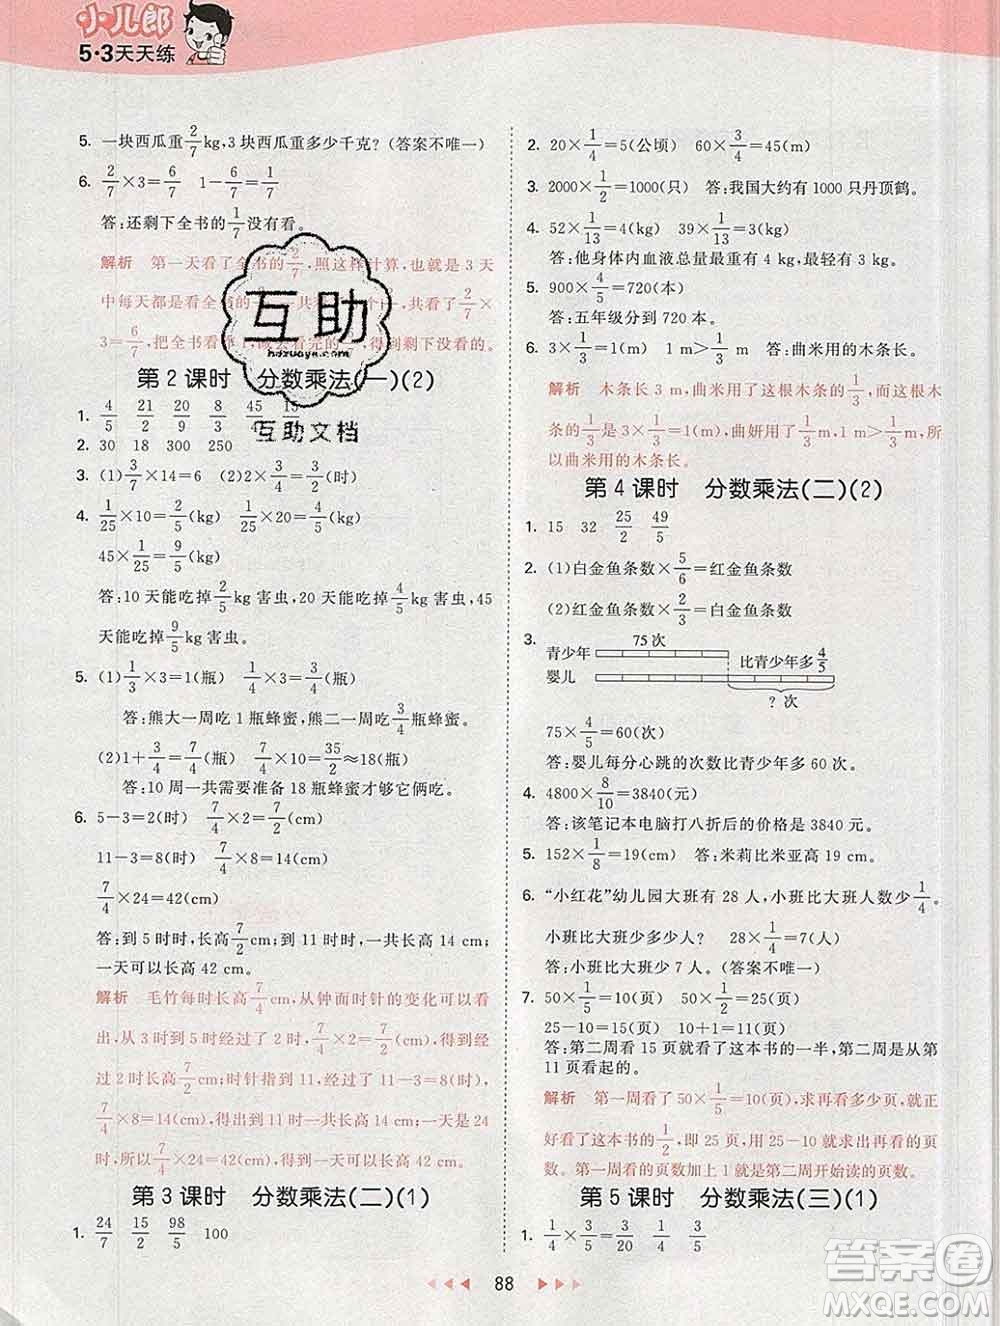 小儿郎
5·3天天练
5. 一块西瓜重2/7kg,3块西瓜重多少千克?(答案不唯一)
6. 2/7×3=6/7 1-6/7=1/7
答:还剩下全书的1/7没有看。
解析 第一天看了全书的2/7,照这样计算,也就是3天
中每天都是看全书的2/7,共看了2/7×
3=6/7,把全书看作1,减去看完的
互助
hdzuoye.com
互助文档
第2课时 分数乘法(一)(2)
1. 4/5 21/2 20/9 8/3 45/4 15
2. 30 18 300 250
3. (1)3/7×14=6 (2)2/5×6=12/5(时)
4. 1/25×10=2/5(kg) 1/25×20=4/5(kg)
45×1/25=9/5(kg)
答:10天能吃掉2/5kg害虫,20天能吃掉4/5kg害虫,45
天能吃掉9/5kg害虫。
5. (1)1/3×3=1(瓶) 1/4×3=3/4(瓶)
答:熊大一周吃1瓶蜂蜜,熊二一周吃3/4瓶蜂蜜。
(2)1+3/4=7/4(瓶) 7/4×10=35/2≈18(瓶)
答:10周一共需要准备18瓶蜂蜜才够它俩吃。
6. 5-3=2(时) 7/4×2=7/2(cm)
11-3=8(时) 7/4×8=14(cm)
7/4×24=42(cm)
答:到5时时,长高7/2cm;到11时时,一共长高14cm;
一天可以长高42cm。
解析 毛竹每时长高7/4cm,从钟面时针的变化可以看
出,从3时到5时经过了2时,7/4×2=7/2(cm),得到
经过2时长高7/2cm;时针从3时到11时经过了8时,
7/4×8=14(cm),得出到11时一共长高14cm;一天是24
时,所以7/4×24=42(cm),一天可以长高42cm。
第3课时 分数乘法(二)(1)
1. 24/7 15/2 98/5 100
2. 20×1/4=5(公顷) 60×3/4=45(m)
3. 2000×1/2=1000(只) 答:我国大约有1000只丹顶鹤。
4. 52×1/13=4(kg) 39×1/13=3(kg)
答:他身体内血液总量最大可能是4kg。
5. 900×4/5=720(本)
答:五年级分到720本。
6. 3×1/3=1(m) 1m>1/3m 答:曲米用的木条长。
解析 木条长3m,曲米用了这根木条的1/3,这根木
条的1/3是3×1/3=1(m),曲妍用了1/3m,1m>1/3m,所
以曲米用的木条长。
第4课时 分数乘法(二)(2)
1. 15 32 25/2 49/5
2. (1)白金鱼条数×5/6=红金鱼条数
(2)红金鱼条数×2/3=白金鱼条数
3. 75次
青少年
比青少年多4/5
婴儿
?次
75×4/5=60(次)
答:婴儿每分心跳的次数比青少年多60次。
4. 4800×8/10=3840(元)
答:该笔记本电脑打八折后的价格是3840元。
5. 152×1/8=19(cm) 答:米莉比米亚高19cm。
6. “小红花”幼儿园大班有28人,小班比大班人数少1/4。
小班比大班少多少人? 28×1/4=7(人)
答:小班比大班少7人。(答案不唯一)
7. 50×1/5=10(页) 50×1/2=25(页)
25-10=15(页) 10+1=11(页)
答:第二周看15页就看了这本书的一半,第二周是从第
11页看起的。
解析 第一周看了50×1/5=10(页),求再看多少页,就正
好看了这本书的1/2,即25页,用25-10求出再看的页
数;第一周看的页数加上1就是第二周开始读的页数。
第5课时 分数乘法(三)(1)
1. 1/4×3/5=3/20 1/4×1/5
88
答案圈
MXQE.COM